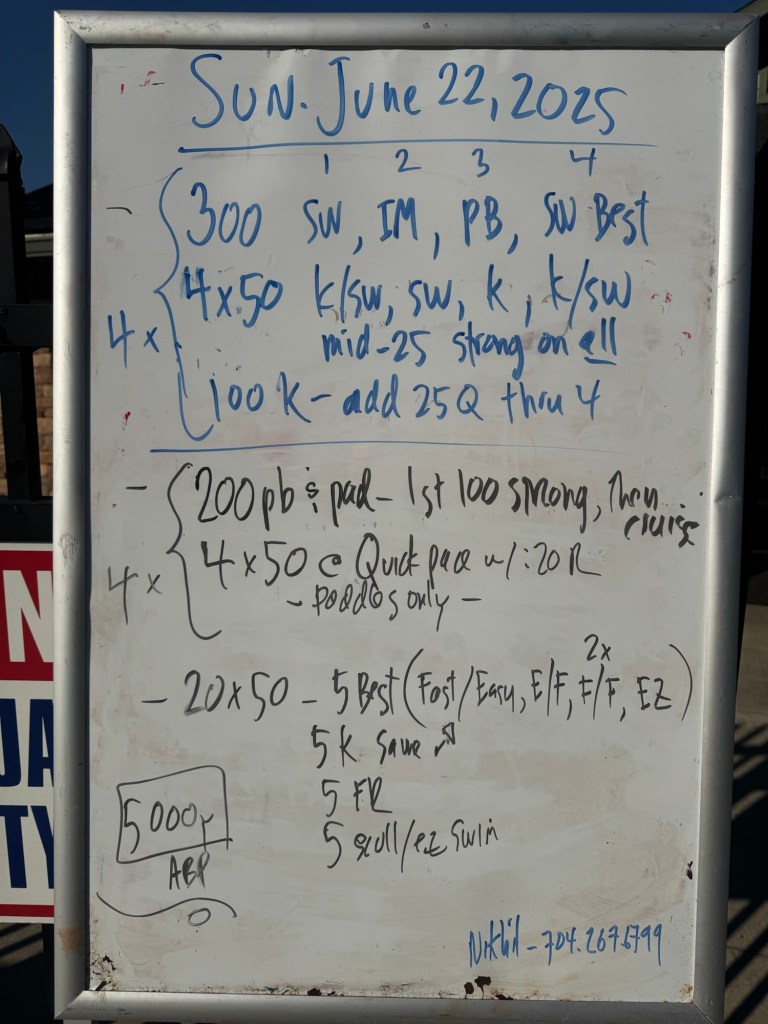 SUN. June 22, 2025
1 2 3 4
- 300 SW, IM, PB, SW Best
4x50 k/sw, sw, k, k/sw
4x
mid-25 strong on all
100 K - add 25 Q thru 4
- 200 pb & pad - 1st 100 strong, then cruise
4x50 @ Quick pace w/ :20 R
4x
- paddles only -
2x
- 20x50 - 5 Best (Fast/Easy, E/F, F/F, EZ)
5 K Same
5 FR
5 scull/ez swim
5000y
N
JA
TY
704.267.6799